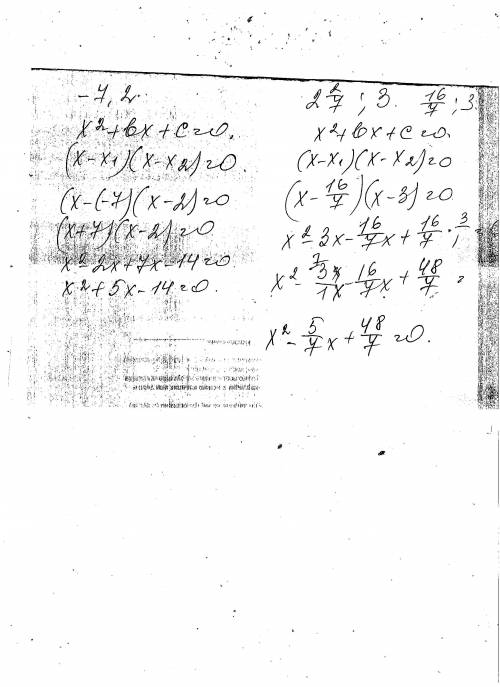 -7, 2.
x²+bx+c=0.
(x-x₁)(x-x₂)=0.
(x-(-7)(x-2)=0
(x+7)(x-2)=0
x²-2x+7x-14=0
x²+5x-14=0.
2 2/7 ; 3. 16/7 ; 3
x²+bx+c=0.
(x-x₁)(x-x₂)=0
(x-16/7)(x-3)=0
x²-3x-16/7x+16/7·3/1=
x²-3x/1-16/7x+48/7=
x²-5/7x+48/7=0.